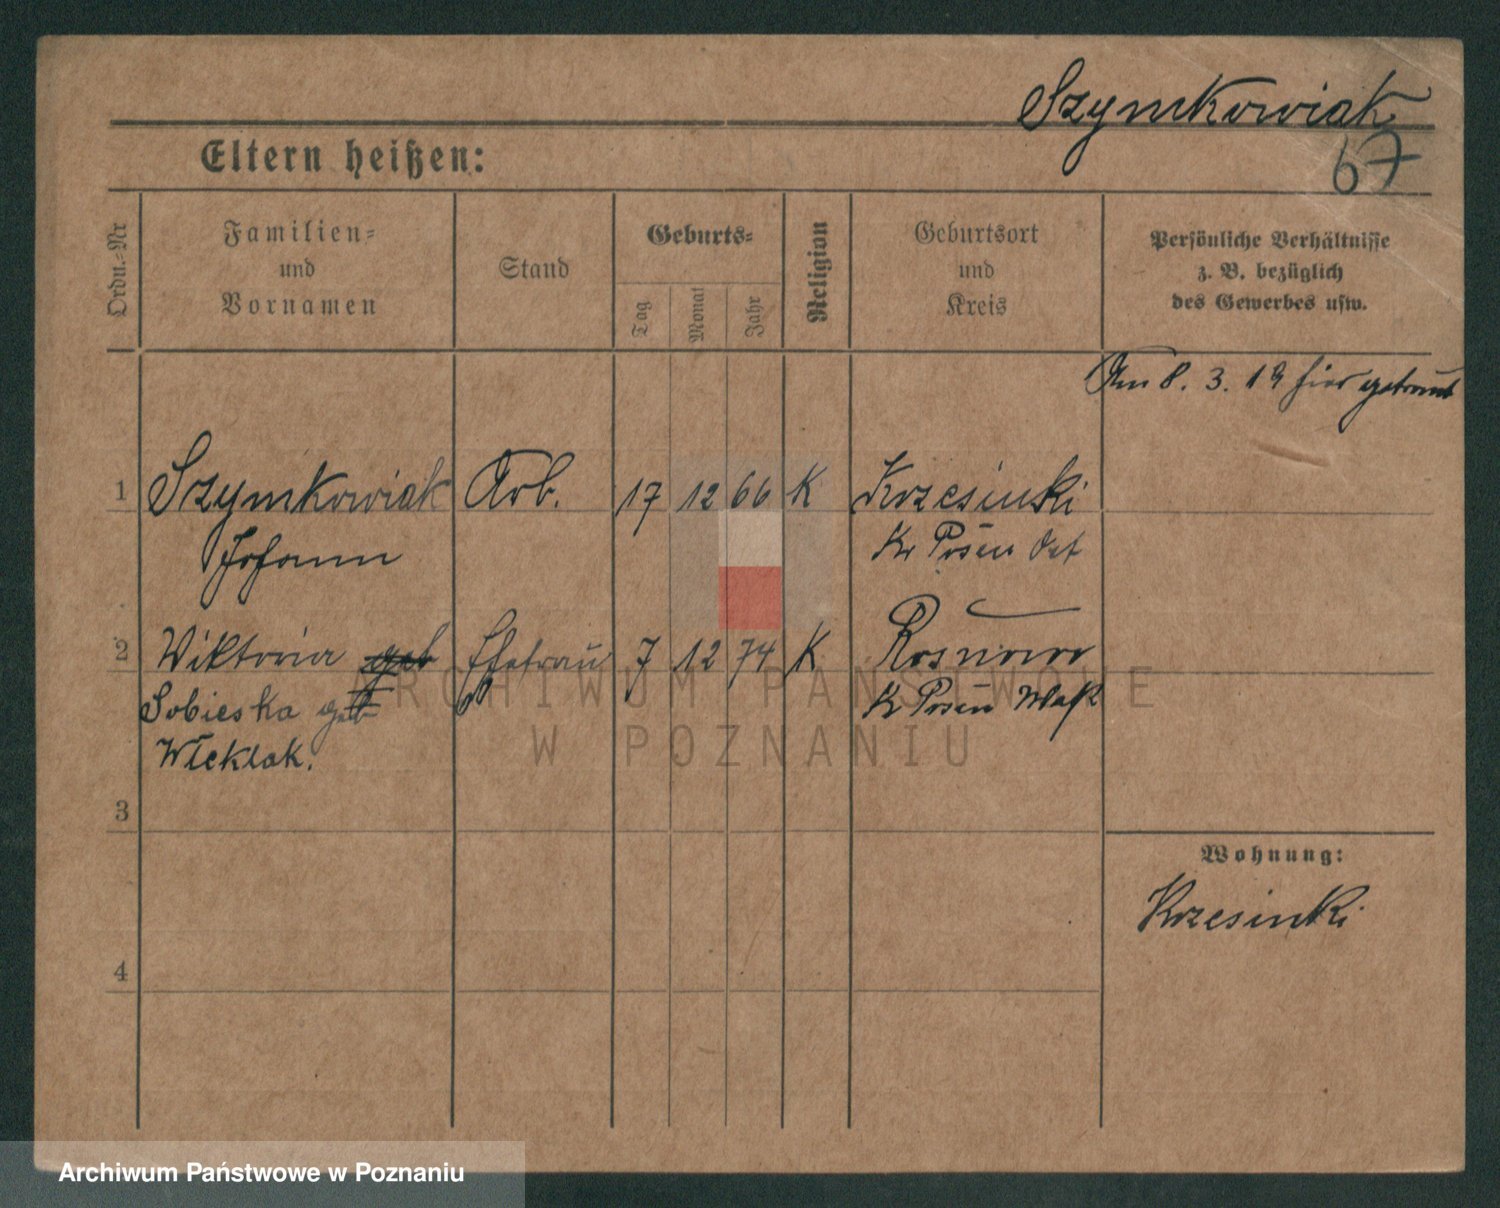 Szymkowiak
67
Eltern heißen:
Ordn.=Nr
Familien=
und
Vornamen
Stand
Geburts=
Tag
Monat
Jahr
Religion
Geburtsort
und
Kreis
Persönliche Verhältnisse
z. B. bezüglich
des Gewerbes usw.
Am 8. 3. 19 hier getraut
1 Szymkowiak Arb. 17 12 66 K Krzesinki
Johann Kr Posen Ost
2 Viktoria geb Ehefrau 7 12 74 K Rosnowo
Sobieska geb Kr Posen West
Wleklak.
3
Wohnung:
Krzesinki
4
ARCHIWUM PAŃSTWOWE
W POZNANIU
Archiwum Państwowe w Poznaniu